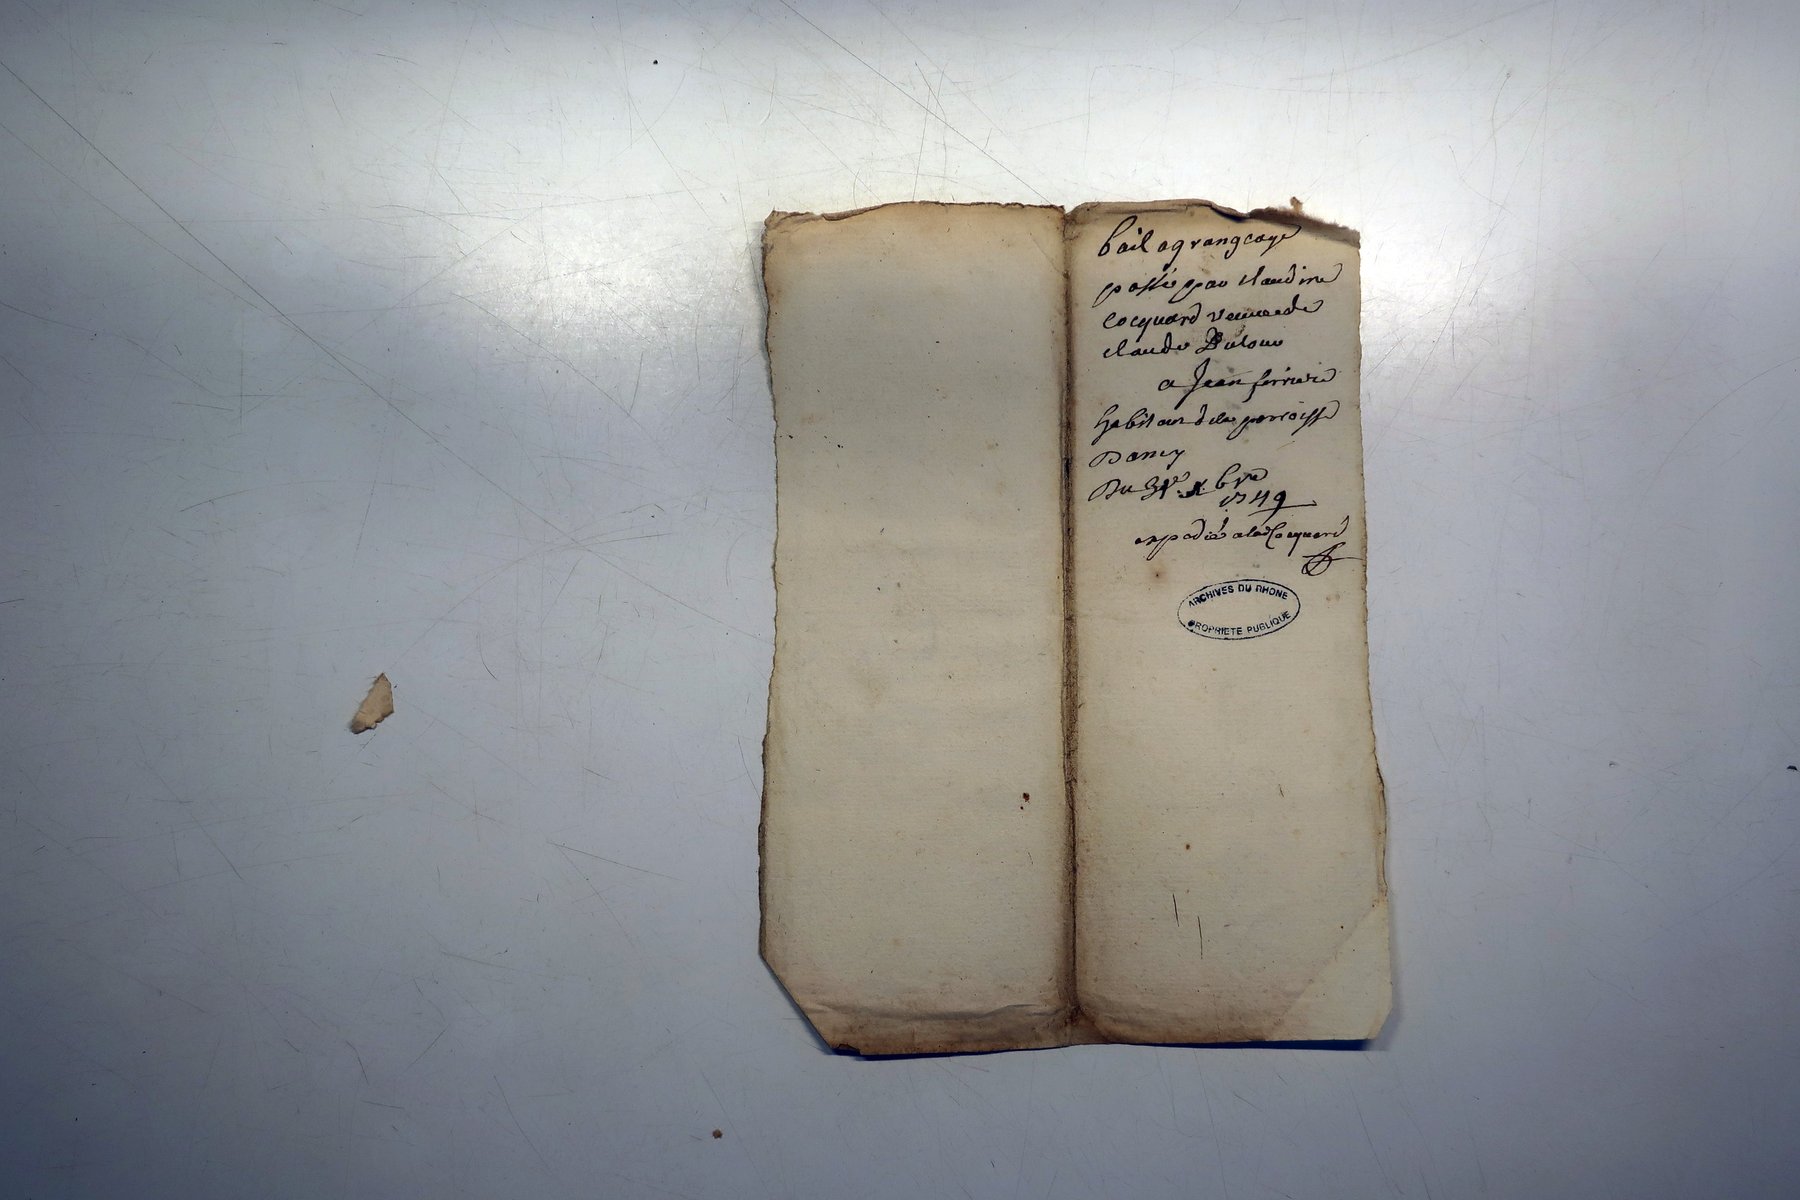 bail a grangeage
passé par claudine
cocquard veuve de
claude Dulour
a Jean ferriere
habitant de la parroisse
Dancy
Du 31e xbre
1749
expedié a lad Cocquard
ARCHIVES DU RHONE
PROPRIETE PUBLIQUE